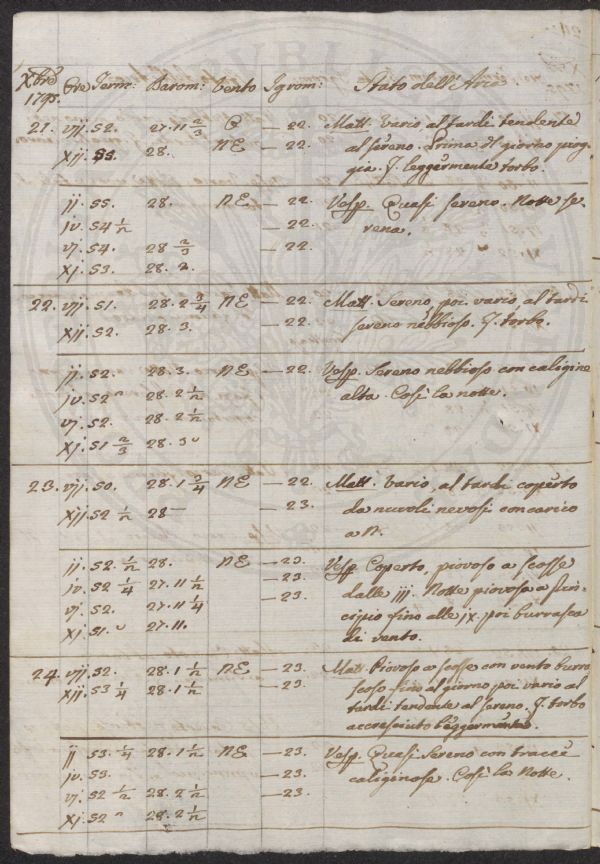 Xbre Ore Term: Barom: Vento Igrom: Stato dell'Aria
1795.
21. vij. 52. 27.11 2/3 O — 22. Matt. Vario, al tardi tendente
xij. 55. 28. NE — 22. al sereno. Prima di giorno piog-
gia. J. leggermente torbo.
ij. 55. 28. NE — 22. Vesp. Quasi sereno. Notte se-
iv. 54 1/2 — 22. rena.
vj. 54. 28 2/3 — 22.
xj. 53. 28. 2.
22. vij. 51. 28. 2 3/4 NE — 22. Matt. Sereno, poi vario, al tardi
xij. 52. 28. 3. — 22. sereno nebbioso. J. torbo.
ij. 52. 28. 3. NE — 22. Vesp. Sereno nebbioso con caligine
iv. 52 " 28. 2 1/2 alta. Così la notte.
vj. 52. 28. 2 1/2
xj. 51 2/3 28. 3 "
23. vij. 50. 28. 1 3/4 NE — 22. Matt. Vario, al tardi coperto
xij. 52 1/2 28 — — 23. da nuvoli nevosi con carico
a N.
ij. 52. 1/2 28. NE — 23. Vesp. Coperto, piovoso a scosse
iv. 52 1/4 27. 11 1/2 — 23. dalle iij. Notte piovosa a prin-
vj. 52. 27. 11 1/4 — 23. cipio fino alle ix. poi burrasca
xj. 51. " 27. 11. di vento.
24. vij. 52. 28. 1 1/2 NE — 23. Matt. Piovoso a scosse con vento burra
xij. 53 1/4 28. 1 1/2 — 23. scoso fino al giorno poi vario al
tardi tendente al sereno. J. torbo
accresciuto leggermente.
ij. 53. 1/4 28. 1 1/2 NE — 23. Vesp. Quasi Sereno con traccie
iv. 53. — 23. caliginose. Così la Notte.
vj. 52 1/2 28. 2 1/2 — 23.
xj. 52 " 28. 2 1/2